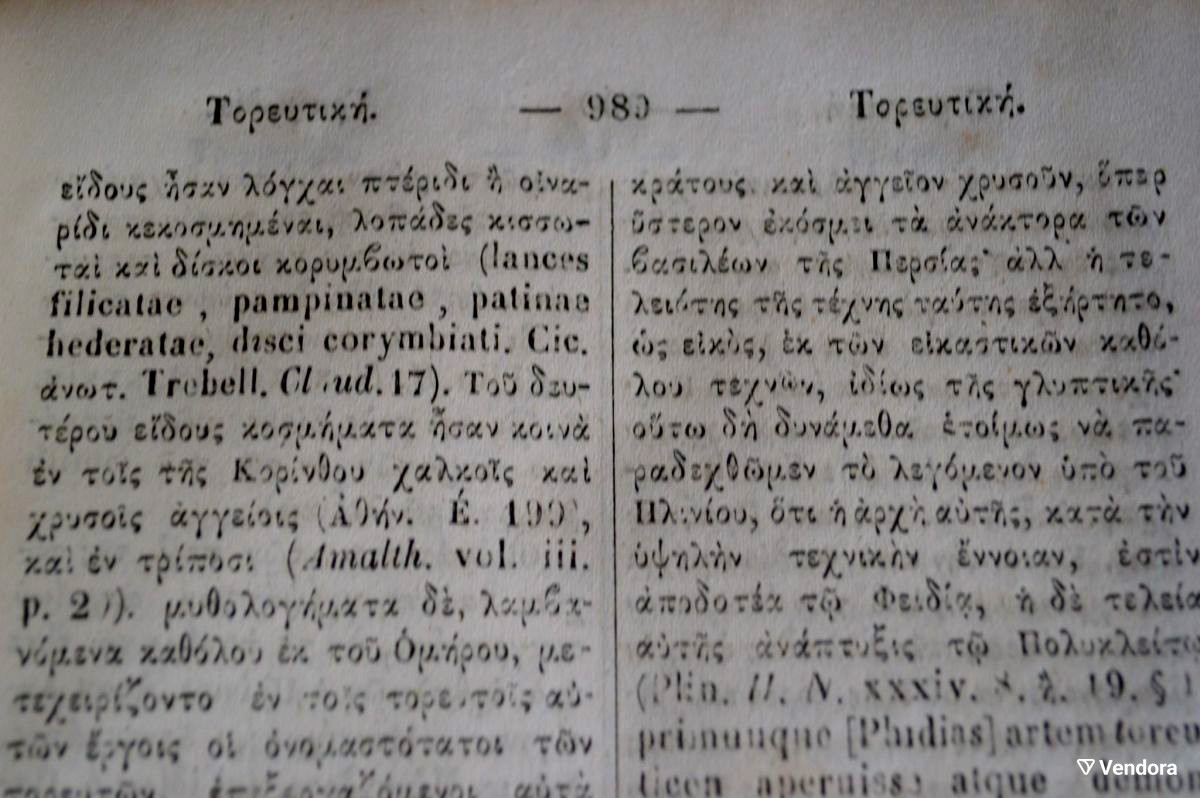 Τορευτική. — 980 — Τορευτική.
εἴδους ἦσαν λόγχαι πτέριδι ἢ οἰνα-
ρίδι κεκοσμημέναι, λοπάδες κισσω-
ταὶ καὶ δίσκοι κορυμβωτοὶ (lances
filicatae, pampinatae, patinae
hederatae, disci corymbiati. Cic.
ἀνωτ. Trebell. Claud. 17). Τοῦ δευ-
τέρου εἴδους κοσμήματα ἦσαν κοινὰ
ἐν τοῖς τῆς Κορίνθου χαλκοῖς καὶ
χρυσοῖς ἀγγείοις (Ἀθήν. Έ. 199),
καὶ ἐν τρίποσι (Amalth. vol. iii.
p. μυθολογήματα δὲ, λαμβα-
νόμενα καθόλου ἐκ τοῦ Ὁμήρου, με-
τεχειρίζοντο ἐν τοῖς τορευτοῖς αὐ-
τῶν ἔργοις οἱ ὀνομαστότατοι τῶν
τορευτῶν, ἐπεξεργαζόμενοι αὐτὰ
κράτους. καὶ ἀγγεῖον χρυσοῦν, ὅπερ
ὕστερον ἐκόσμει τὰ ἀνάκτορα τῶν
βασιλέων τῆς Περσίας· ἀλλ ἡ τε-
λειότης τῆς τέχνης ταύτης ἐξήρτητο,
ὡς εἰκὸς, ἐκ τῶν εἰκαστικῶν καθό-
λου τεχνῶν, ἰδίως τῆς γλυπτικῆς·
οὕτω δὴ δυνάμεθα ἑτοίμως νὰ πα-
ραδεχθῶμεν τὸ λεγόμενον ὑπὸ τοῦ
Πλινίου, ὅτι ἡ ἀρχὴ αὐτῆς, κατὰ τὴν
ὑψηλὴν τεχνικὴν ἔννοιαν, ἐστὶν
ἀποδοτέα τῷ Φειδίᾳ, ἡ δὲ τελεία
αὐτῆς ἀνάπτυξις τῷ Πολυκλείτῳ
(Plin. H. N. xxxiv. 8. s. 19. §
primumque [Phidias] artem toreu
ticen aperuisse atque demon
Vendora